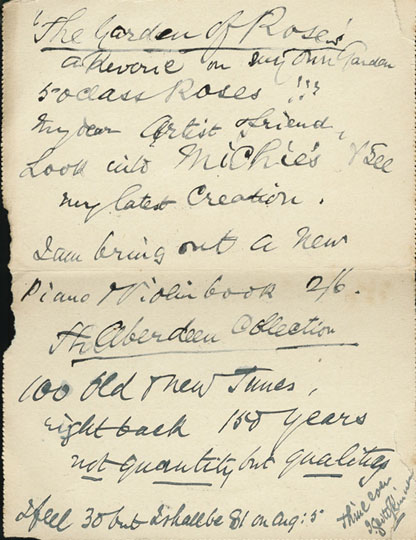 "The Garden of Roses"
a Reverie on my own Garden
50 class Roses !!!
My dear Artist Friend,
Look into Michie's & See
my latest Creation.
I am bring out a New
Piano & Violin book 2/6.
The Aberdeen Collection
100 old & new Tunes,
right back 150 years
not quantity but quality
I feel 30 but I shall be 81 on Aug: 5
thine ever